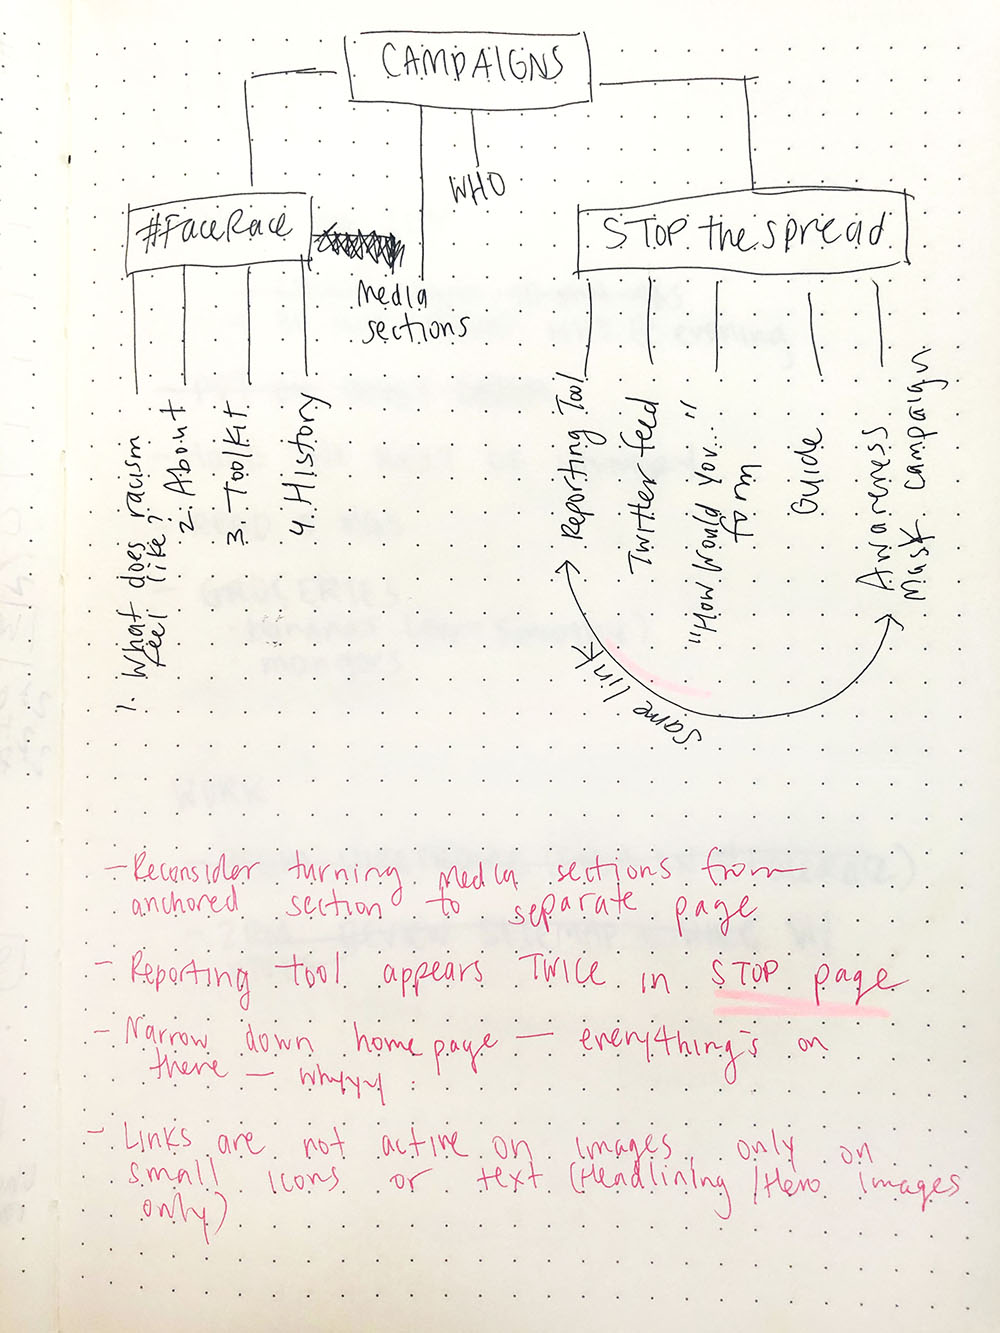 CAMPAIGNS
WHO
#FaceRace
STOP the spread
Media
sections
1. What does racism
feel like?
2. About
3. Toolkit
4. History
Reporting Tool
Twitter feed
"How Would You..."
form
Guide
Awareness
Mask campaign
same link
- Reconsider turning media sections from
anchored section to separate page
- Reporting tool appears TWICE in STOP page
- Narrow down homepage — everything's on
there — whyyy
- Links are not active on images, only on
small icons or text (Headlining/Hero images
only)
GROCERIES
mangoes
WORK